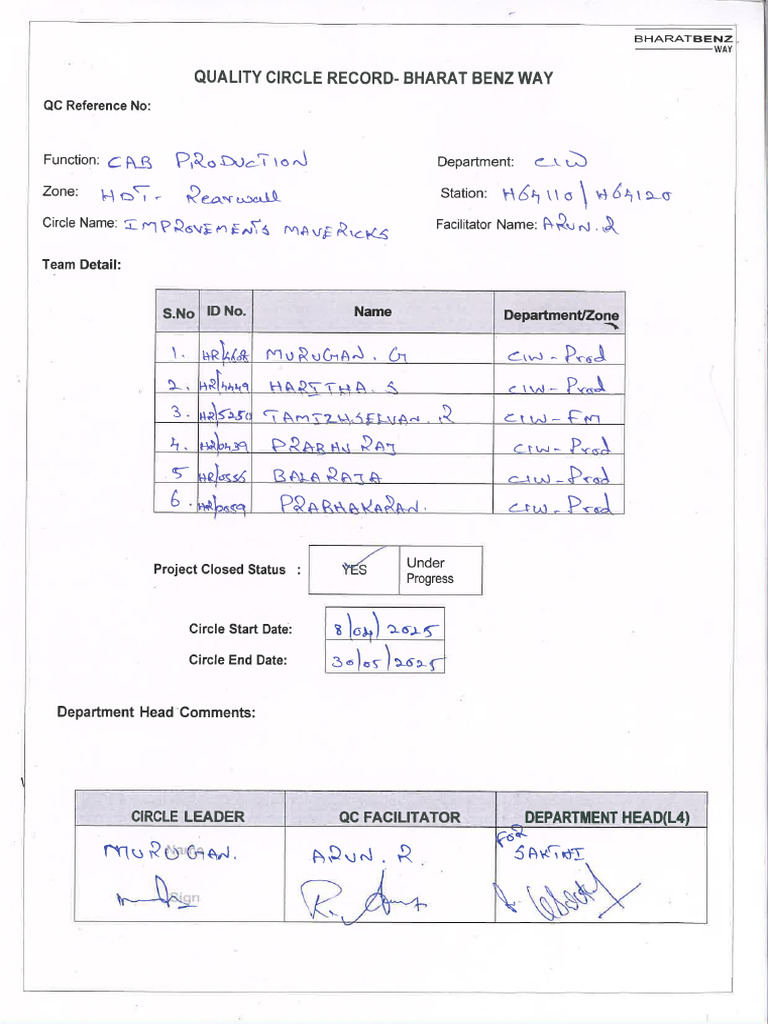 BHARATBENZ
WAY
QUALITY CIRCLE RECORD- BHARAT BENZ WAY
QC Reference No:
Function: CAB PRODUCTION Department: CIW
Zone: HDT- Rearwall Station: H64110/H64120
Circle Name: IMPROVEMENTS MAVERICKS Facilitator Name: ARUN.R
Team Detail:
S.No ID No. Name Department/Zone
1. HR/4608 MURUGAN. G CIW-Prod
2. HR/4449 HARITHA. S CIW-Prod
3. HR/5250 TAMIZHSELVAN. R CIW-FM
4. HR/0439 PRABHU RAJ CIW-Prod
5 HR/0556 BALARAJA CIW-Prod
6. PRABHAKARAN. CIW-Prod
Project Closed Status : YES Under Progress
Circle Start Date: 8/04/2025
Circle End Date: 30/05/2025
Department Head Comments:
CIRCLE LEADER QC FACILITATOR DEPARTMENT HEAD(L4)
MURUGAN. Name ARUN. R. FOR SAKTHI
Sign